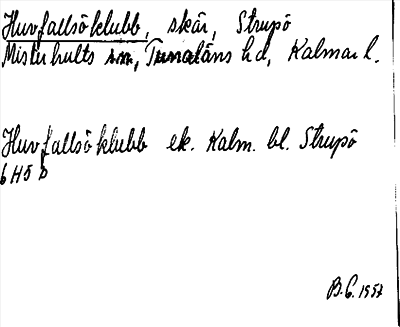 Huvfallsö klubb, skär, Strupö
Misterhults sn, Tunaläns hd, Kalmar l.
Huvfallsö klubb ek. Kalm. bl. Strupö
6H5 D
B.G. 1957